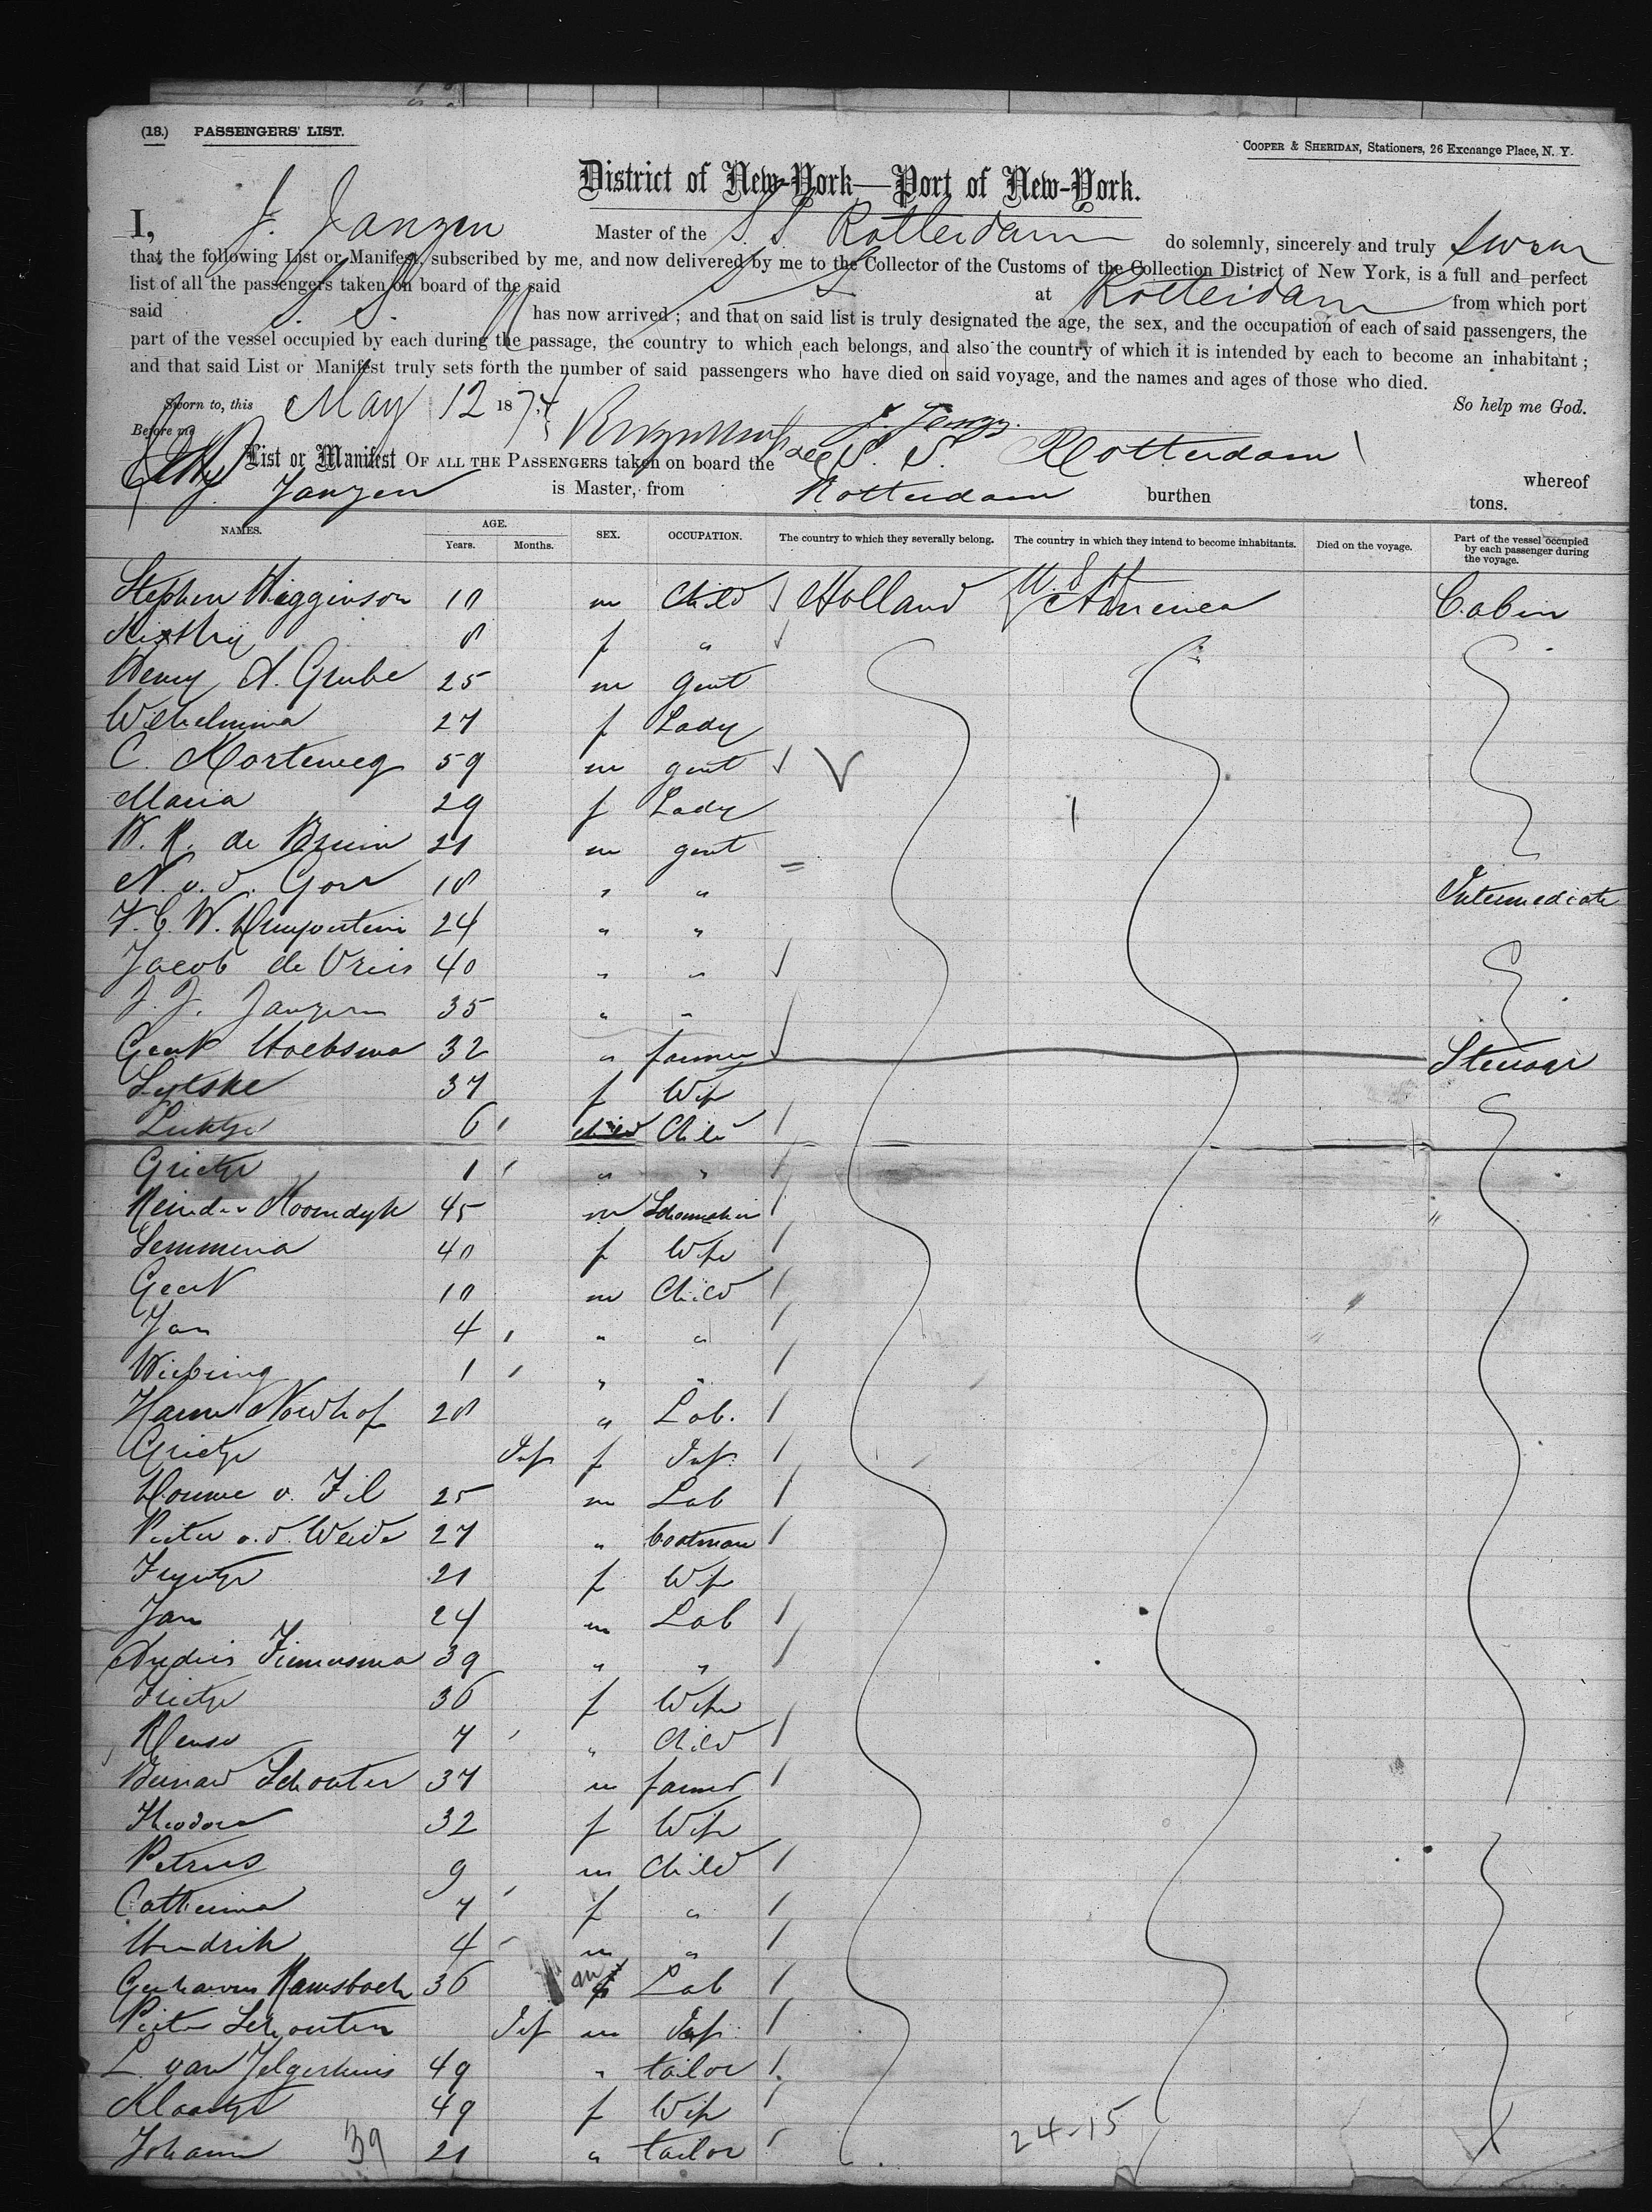 (18.) PASSENGERS' LIST.
COOPER & SHERIDAN, Stationers, 26 Exchange Place, N. Y.
District of New-York—Port of New-York.
I, J. Janzen Master of the S. S. Rotterdam do solemnly, sincerely and truly swear
that the following List or Manifest, subscribed by me, and now delivered by me to the Collector of the Customs of the Collection District of New York, is a full and perfect
list of all the passengers taken on board of the said S. S. at Rotterdam from which port
said S. S. has now arrived; and that on said list is truly designated the age, the sex, and the occupation of each of said passengers, the
part of the vessel occupied by each during the passage, the country to which each belongs, and also the country of which it is intended by each to become an inhabitant;
and that said List or Manifest truly sets forth the number of said passengers who have died on said voyage, and the names and ages of those who died.
Sworn to, this May 12 1874 So help me God.
Before me
List or Manifest OF ALL THE PASSENGERS taken on board the S. S. Rotterdam whereof
Janzen is Master, from Rotterdam burthen tons.
NAMES. AGE. Years. Months. SEX. OCCUPATION. The country to which they severally belong. The country in which they intend to become inhabitants. Died on the voyage. Part of the vessel occupied by each passenger during the voyage.
Stephen Higginson 10 m Child Holland U.S. America Cabin
8 f "
Henry A. Grube 25 m gent
Wilhelmina 27 f Lady
C. Korteweg 59 m gent
Maria 29 f Lady
W. R. de Bruin 21 m gent
N. v. d. Goor 18 " " Intermediate
24 " "
Jacob de Vries 40 " "
J. J. Janzen 35 " "
Geert Hoeksma 32 " farmer Steerage
Sytske 37 f Wife
6 child Child
Grietje 1 " "
45 m Shoemaker
Lemmina 40 f Wife
Geert 10 m Child
Jan 4 " "
1 " "
Harm Nowhof 28 " Lab.
Grietje Inf f Inf.
Douwe v. Til 25 m Lab
Pieter v. d. Weide 27 " boatman
21 f Wife
Jan 24 m Lab
39 " "
36 f Wife
7 " Child
Bernard Schouten 37 m farmer
Theodora 32 f Wife
Petrus 9 m Child
Catherina 7 f "
Hendrik 4 m "
36 m Lab
Pieter Schouten Inf m Inf
L. van Jelgerhuis 49 " tailor
Klaartje 49 f Wife
Johann 39 21 " tailor
24-15